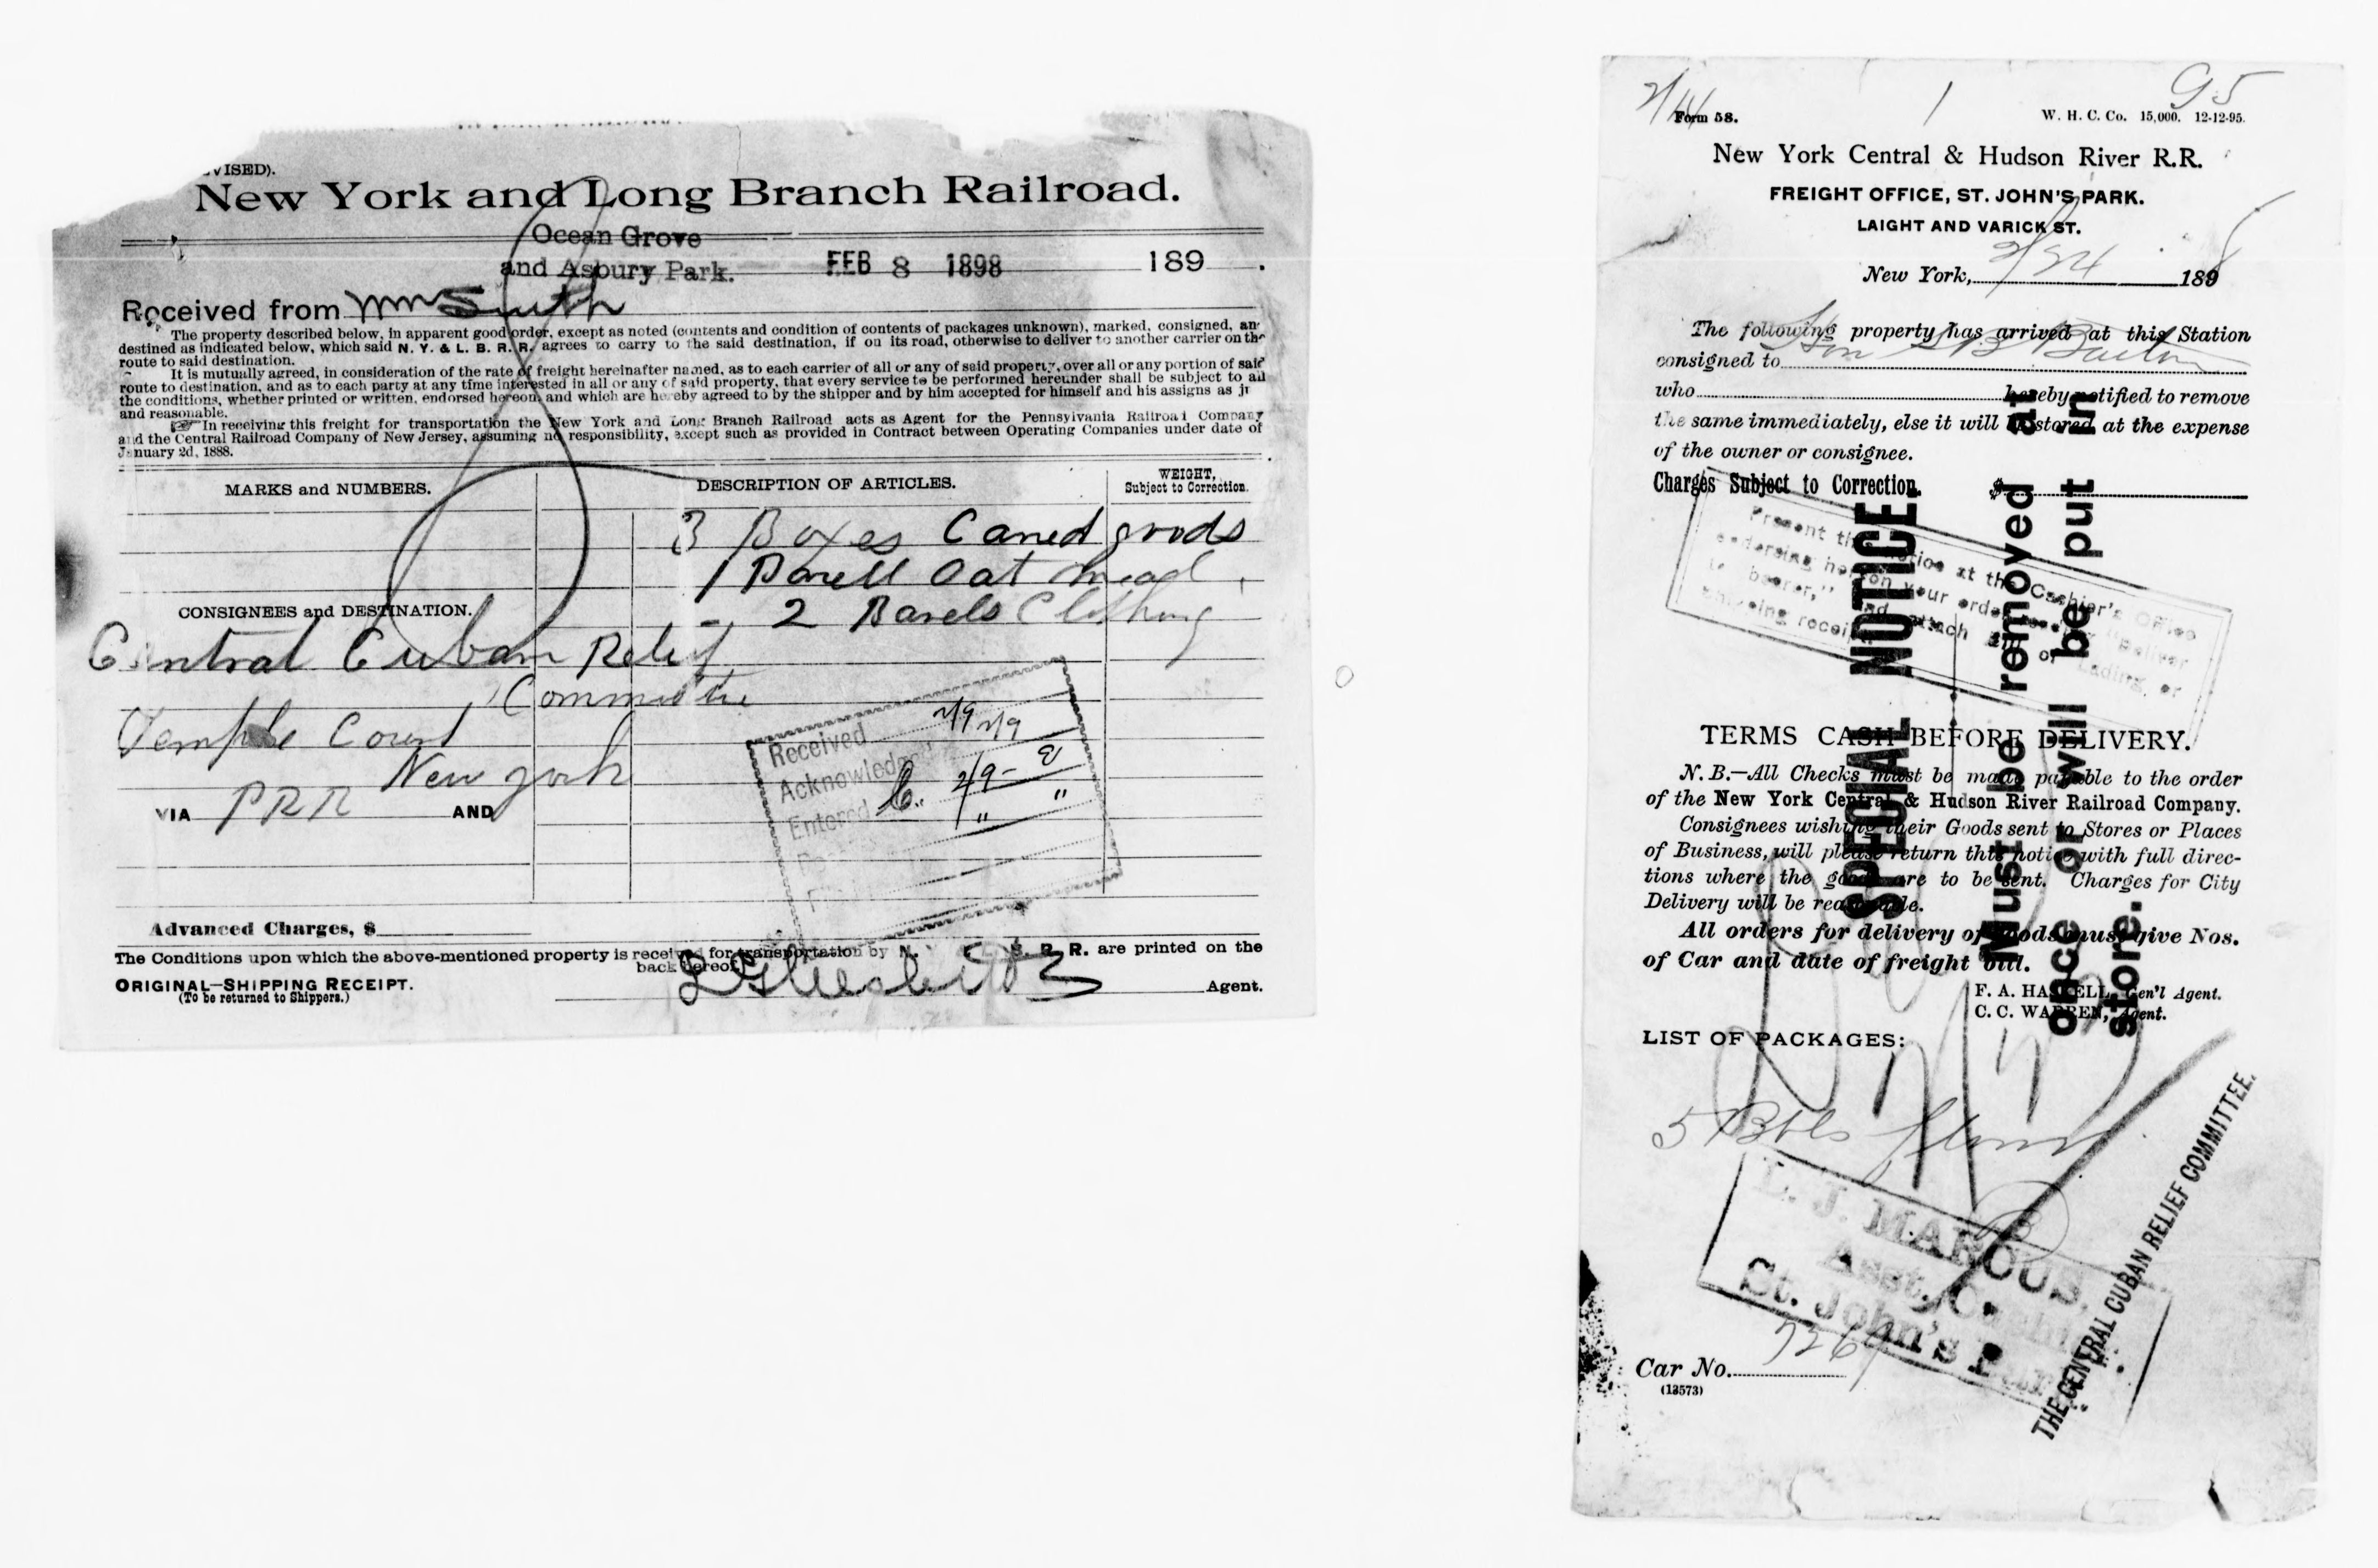 VISED).
New York and Long Branch Railroad.
Ocean Grove
and Asbury Park. FEB 8 1898 189 .
Received from Wm Smith
The property described below, in apparent good order, except as noted (contents and condition of contents of packages unknown), marked, consigned, an
destined as indicated below, which said N. Y. & L. B. R. R. agrees to carry to the said destination, if on its road, otherwise to deliver to another carrier on the
route to said destination.
It is mutually agreed, in consideration of the rate of freight hereinafter named, as to each carrier of all or any of said property, over all or any portion of said
route to destination, and as to each party at any time interested in all or any of said property, that every service to be performed hereunder shall be subject to all
the conditions, whether printed or written, endorsed hereon, and which are hereby agreed to by the shipper and by him accepted for himself and his assigns as ju
and reasonable.
In receiving this freight for transportation the New York and Long Branch Railroad acts as Agent for the Pennsylvania Railroad Company
and the Central Railroad Company of New Jersey, assuming no responsibility, except such as provided in Contract between Operating Companies under date of
January 2d, 1888.
MARKS and NUMBERS. DESCRIPTION OF ARTICLES. WEIGHT, Subject to Correction.
3 Boxes Caned goods
1 Barell Oat meal
2 Barels Clothing
CONSIGNEES and DESTINATION.
Central Cuban Relief
Committe
Temple Court
New York
VIA PRR AND
Received 2/9 2/9
Acknowledged 2/9
Entered " "
Advanced Charges, $
The Conditions upon which the above-mentioned property is received for transportation by N. Y. & L. B. R. R. are printed on the
back hereof.
ORIGINAL—SHIPPING RECEIPT.
(To be returned to Shippers.)
Agent.
2/14 1 95
Form 58. W. H. C. Co. 15,000. 12-12-95.
New York Central & Hudson River R.R.
FREIGHT OFFICE, ST. JOHN'S PARK.
LAIGHT AND VARICK ST.
New York, 2/24 1898
The following property has arrived at this Station
consigned to Hon S B Barton
who hereby notified to remove
the same immediately, else it will be stored at the expense
of the owner or consignee.
Charges Subject to Correction. $
Present this notice at the Cashier's Office
endorsing hereon your order to "Deliver
to bearer," and attach Bill of Lading, or
shipping receipt.
SPECIAL NOTICE
Must be removed at
once or will be put in
store.
TERMS CASH BEFORE DELIVERY.
N. B.—All Checks must be made payable to the order
of the New York Central & Hudson River Railroad Company.
Consignees wishing their Goods sent to Stores or Places
of Business, will please return this notice with full direc-
tions where the goods are to be sent. Charges for City
Delivery will be reasonable.
All orders for delivery of goods must give Nos.
of Car and date of freight bill.
F. A. HASKELL, Gen'l Agent.
C. C. WARREN, Agent.
LIST OF PACKAGES:
5 Bbls flour
L. J. MARCUS,
Asst. Cashier
St. John's Park
THE CENTRAL CUBAN RELIEF COMMITTEE.
Car No. 7267
(13573)